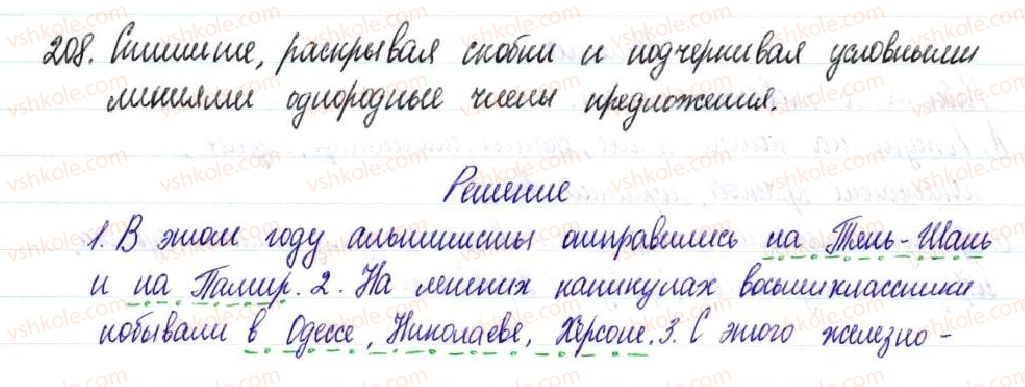 208. Спишите, раскрывая скобки и подчеркивая условными
линиями однородные члены предложения.
Решение
1. В этом году альпинисты отправились на Тянь-Шань
и на Памир. 2. На летних каникулах восьмиклассники
побывали в Одессе, Николаеве, Херсоне. 3. С этого железно-